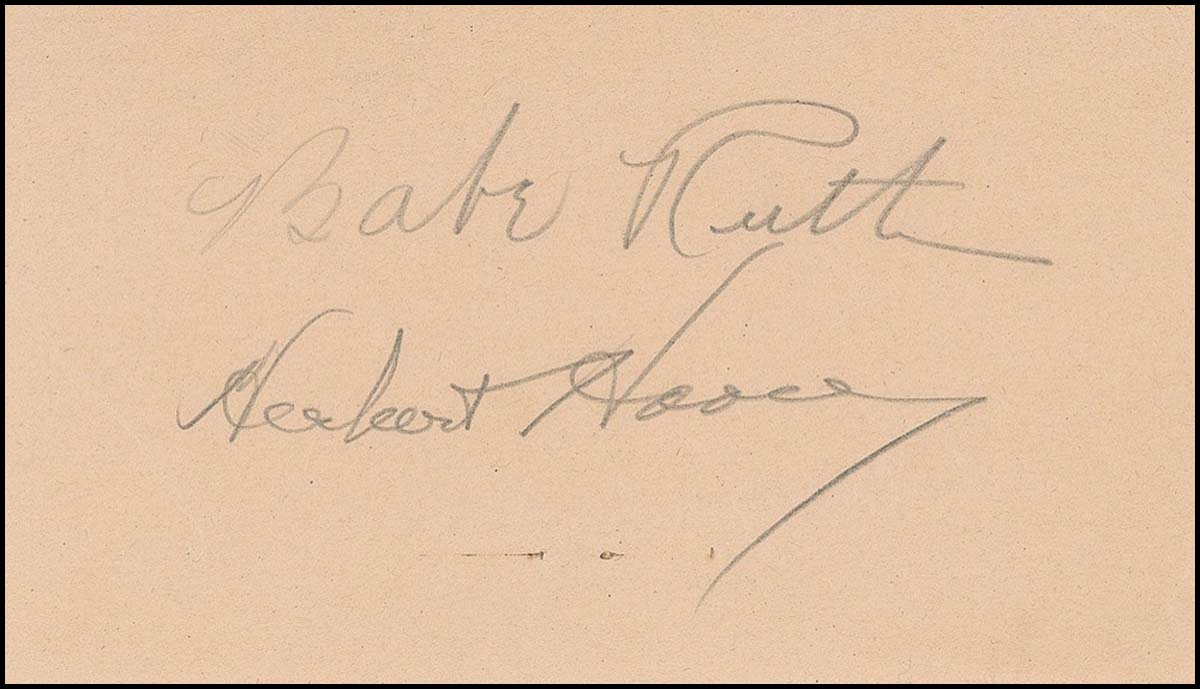 Babe Ruth
Herbert Hoover